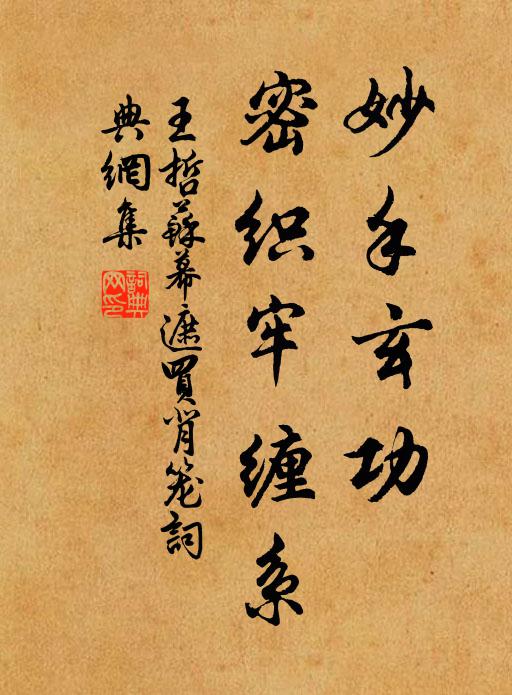 妙手玄功
密织牢缠系
王哲蘇幕遮買背笼詞
典網集
詞典网印